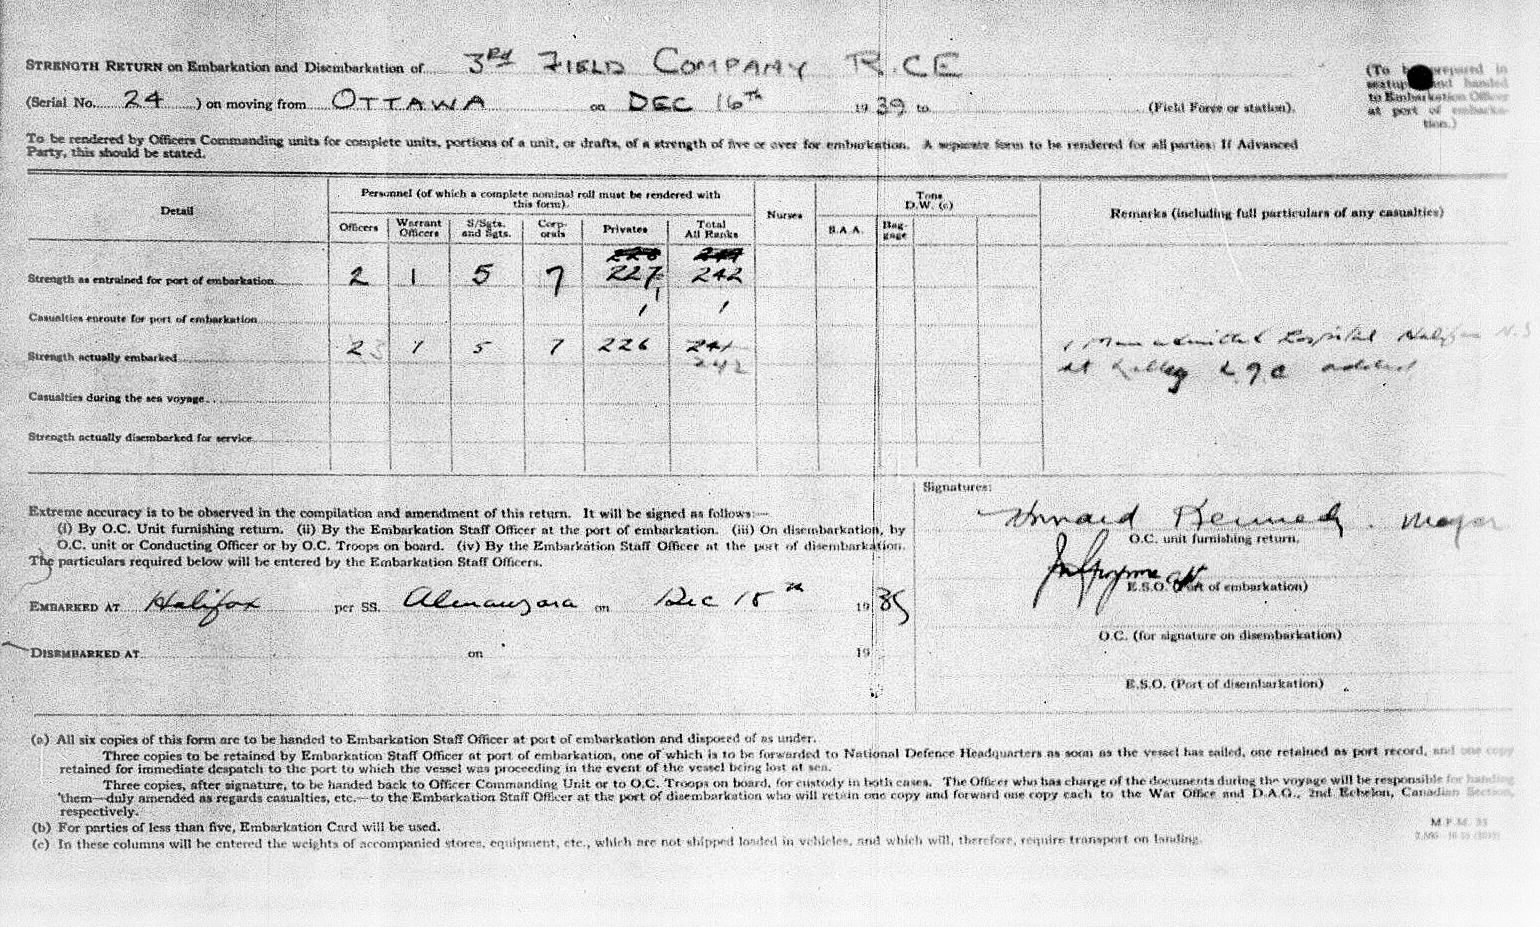 STRENGTH RETURN on Embarkation and Disembarkation of 3RD FIELD COMPANY R.C.E
(To be prepared in
sextuplicate and handed
to Embarkation Officer
at port of embarka-
tion.)
(Serial No. 24 ) on moving from OTTAWA on DEC 16TH 1939 to (Field Force or station).
To be rendered by Officers Commanding units for complete units, portions of a unit, or drafts, of a strength of five or over for embarkation. A separate form to be rendered for all parties: If Advanced
Party, this should be stated.
Detail
Personnel (of which a complete nominal roll must be rendered with
this form).
Nurses
Tons
D.W. (c)
Remarks (including full particulars of any casualties)
Officers Warrant Officers S/Sgts. and Sgts. Corp-orals Privates Total All Ranks
S.A.A. Bag-gage
Strength as entrained for port of embarkation 2 1 5 7 227 242
Casualties enroute for port of embarkation 1 1
Strength actually embarked 2 3 1 5 7 226 241
242
1 Man admitted Hospital Halifax N.S
added
Casualties during the sea voyage
Strength actually disembarked for service
Extreme accuracy is to be observed in the compilation and amendment of this return. It will be signed as follows:—
(i) By O.C. Unit furnishing return. (ii) By the Embarkation Staff Officer at the port of embarkation. (iii) On disembarkation, by
O.C. unit or Conducting Officer or by O.C. Troops on board. (iv) By the Embarkation Staff Officer at the port of disembarkation.
The particulars required below will be entered by the Embarkation Staff Officers.
EMBARKED AT Halifax per SS. Almanzora on Dec 18th 1939
DISEMBARKED AT on 19
Signatures:
Howard Kennedy. Major
O.C. unit furnishing return.
E.S.O. (Port of embarkation)
O.C. (for signature on disembarkation)
E.S.O. (Port of disembarkation)
(a) All six copies of this form are to be handed to Embarkation Staff Officer at port of embarkation and disposed of as under.
Three copies to be retained by Embarkation Staff Officer at port of embarkation, one of which is to be forwarded to National Defence Headquarters as soon as the vessel has sailed, one retained as port record, and one copy
retained for immediate despatch to the port to which the vessel was proceeding in the event of the vessel being lost at sea.
Three copies, after signature, to be handed back to Officer Commanding Unit or to O.C. Troops on board, for custody in both cases. The Officer who has charge of the documents during the voyage will be responsible for handing
them—duly amended as regards casualties, etc.—to the Embarkation Staff Officer at the port of disembarkation who will retain one copy and forward one copy each to the War Office and D.A.G., 2nd Echelon, Canadian Section,
respectively.
(b) For parties of less than five, Embarkation Card will be used.
(c) In these columns will be entered the weights of accompanied stores, equipment, etc., which are not shipped loaded in vehicles, and which will, therefore, require transport on landing.
M.F.M. 33